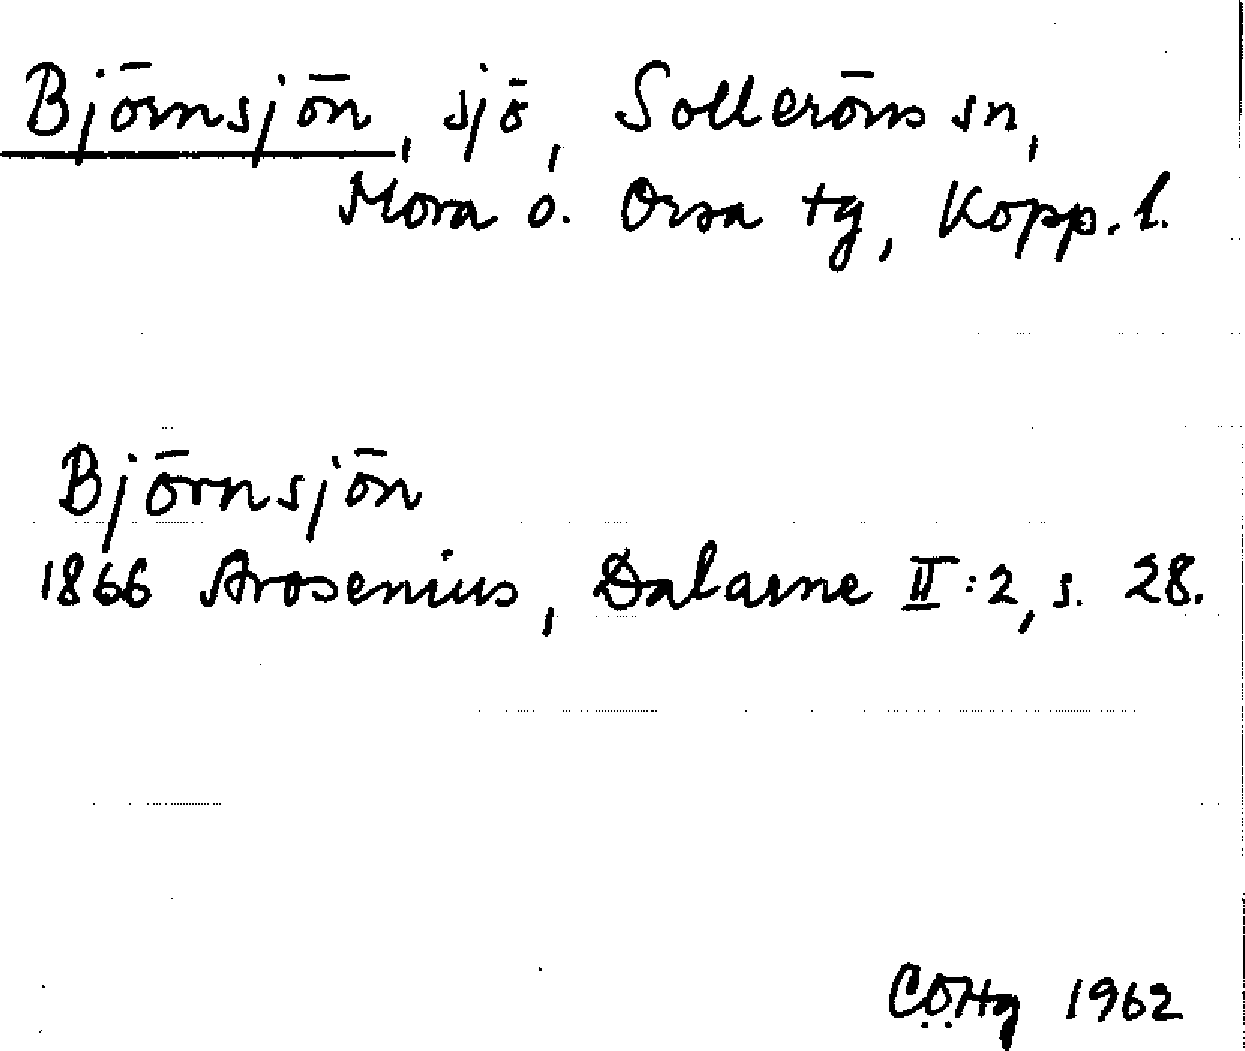 Björnsjön, sjö, Solleröns sn,
Mora o. Orsa tg, Kopp. l.
Björnsjön
1866 Arosenius, Dalarne II:2, s. 28.
CÖHg 1962